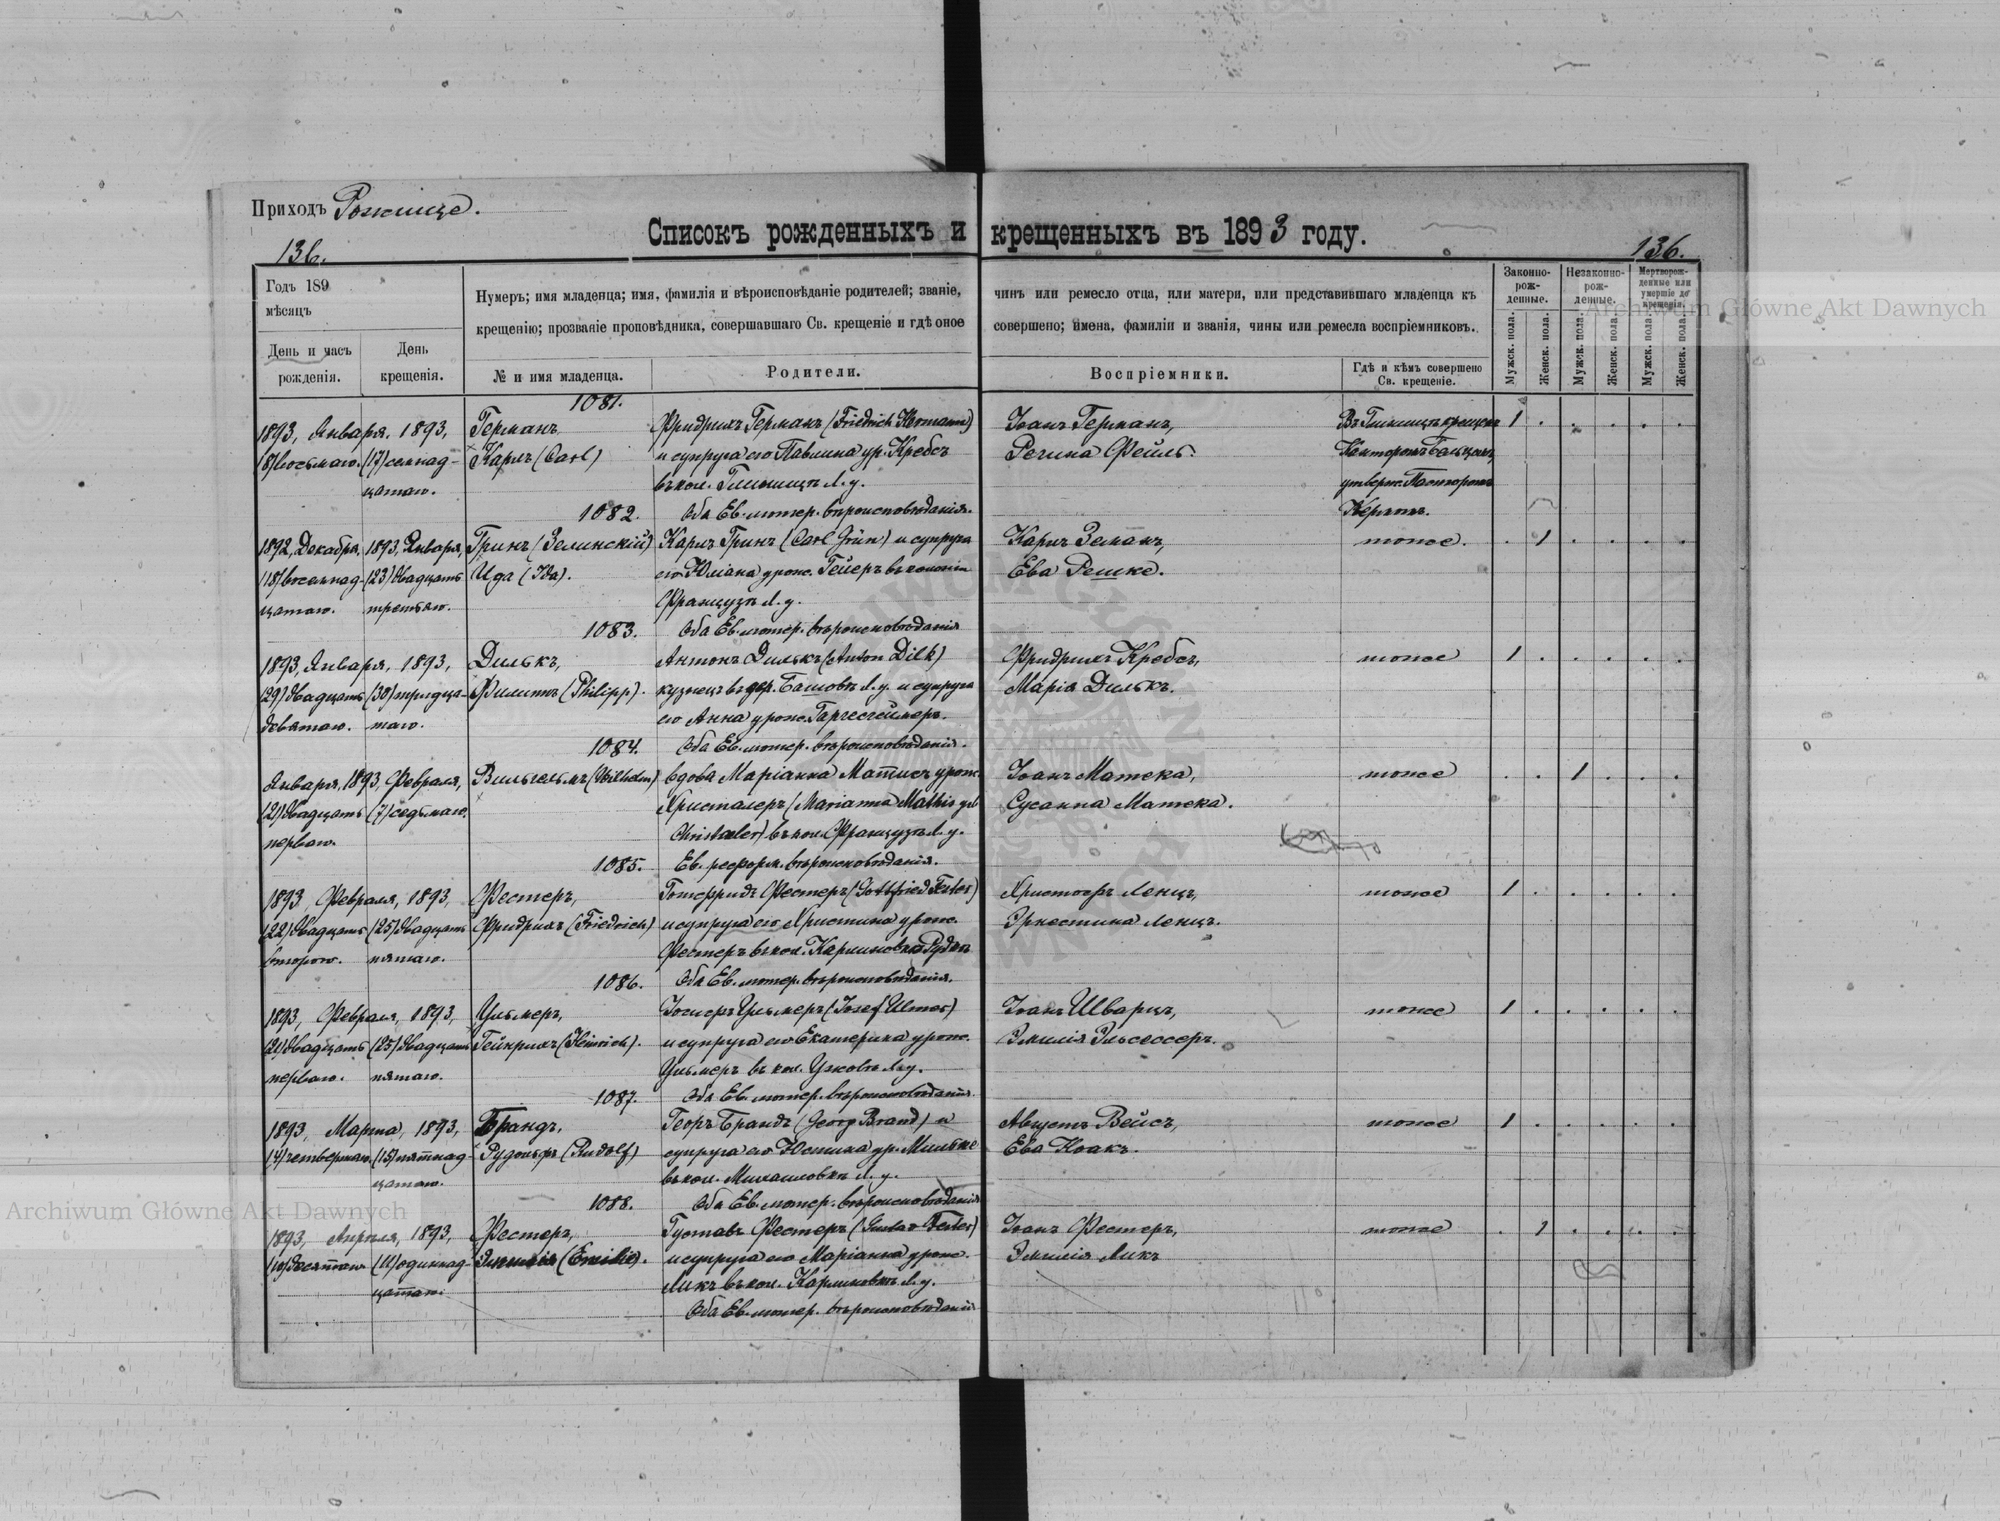 Приходъ Рожище.
Списокъ рожденныхъ и крещенныхъ въ 1893 году.
136.
136.
Годъ 189
мѣсяцъ
День и часъ рожденія.
День крещенія.
Нумеръ; имя младенца; имя, фамилія и вѣроисповѣданіе родителей; званіе, чинъ или ремесло отца, или матери, или представившаго младенца къ
крещенію; прозваніе проповѣдника, совершавшаго Св. крещеніе и гдѣ оное совершено; имена, фамиліи и званія, чины или ремесла воспріемниковъ.
№ и имя младенца.
Родители.
Воспріемники.
Гдѣ и кѣмъ совершено Св. крещеніе.
Законно-рож-денные.
Незаконно-рож-денные.
Мертворож-денные или умершіе до крещенія.
Мужск. пола.
Женск. пола.
Мужск. пола.
Женск. пола.
Мужск. пола.
Женск. пола.
1081.
1893, Января, 1893, Германъ, Фридрихъ Германъ (Friedrich Hermann) Іоанъ Германъ, 1
(8) восьмаго. (17) семнад- Карлъ (Carl) и супруга его Павлина ур. Кребсъ Регина Фейль. Канторомъ
цатаго. въ кол. Л. у. утвержд. Пасторомъ
1082. Оба Ев. лютер. вѣроисповѣданія. Кернъ
1892, Декабря, 1893, Января, Гринъ (Зелинскій) Карлъ Гринъ (Carl Grün) и супруга Карлъ Земанъ, тоже. 1
(18) восемнад- (23) двадцать Ида (Ida). его Юліана урож. Гейеръ въ колоніи Ева Решке.
цатаго. третьяго. Французъ Л. у.
1083. Оба Ев. лютер. вѣроисповѣданія
1893, Января, 1893, Дилькъ, Антонъ Дилькъ (Anton Dilk) Фридрихъ Кребсъ, тоже 1
(29) двадцать (30) тридца- Филиппъ (Philipp). кузнецъ въ дер. Башовъ Л. у. и супруга Марія Дилькъ.
девятаго. таго. его Анна урож. Гаргесгеймеръ.
1084. Оба Ев. лютер. вѣроисповѣданія.
Января, 1893, Февраля, Вильгельмъ (Wilhelm) вдова Маріанна Матисъ урож. Іоанъ Матека, тоже 1
(21) двадцать (7) седьмаго. Христалеръ (Marianna Mathis geb Сусанна Матека.
перваго. Christaler) въ кол. Французъ Л. у.
1085. Ев. реформ. вѣроисповѣданія.
1893, Февраля, 1893, Фестеръ, Готфридъ Фестеръ (Gottfried Fester) Христофъ Ленцъ, тоже 1
(22) двадцать (25) двадцать Фридрихъ (Friedrich) и супруга его Христина урож. Эрнестина Ленцъ.
второго. пятаго. Фестеръ въ кол.
1086. Оба Ев. лютер. вѣроисповѣданія.
1893, Февраля, 1893, Ульмеръ, Іосифъ Ульмеръ (Josef Ulmer) Іоанъ Шварцъ, тоже 1
(21) двадцать (25) двадцать Гейнрихъ (Heinrich). и супруга его Екатерина урож. Эмилія Эльсессеръ.
перваго. пятаго. Ульмеръ въ кол. Ужовъ Л. у.
1087. Оба Ев. лютер. вѣроисповѣданія.
1893, Марта, 1893, Брандъ, Георъ Брандъ (Georg Brand) и Августъ Вейсъ, тоже 1
(4) четвертаго. (15) пятнад- Рудольфъ (Rudolf) супруга его Юстина ур. Мильке Ева Ноакъ.
цатаго. въ кол. Михаиловкѣ Л. у.
1088. Оба Ев. лютер. вѣроисповѣданія
1893, Апрѣля, 1893, Фестеръ, Густавъ Фестеръ (Gustav Fester) Іоанъ Фестеръ, тоже 1
(10) десятаго (11) одиннад- Эмилія (Emilie). и супруга его Маріанна урож. Эмилія Ликъ
цатаго. Ликъ въ кол. Карлиновкѣ Л. у.
Оба Ев. лютер. вѣроисповѣданія
Archiwum Główne Akt Dawnych
Archiwum Główne Akt Dawnych